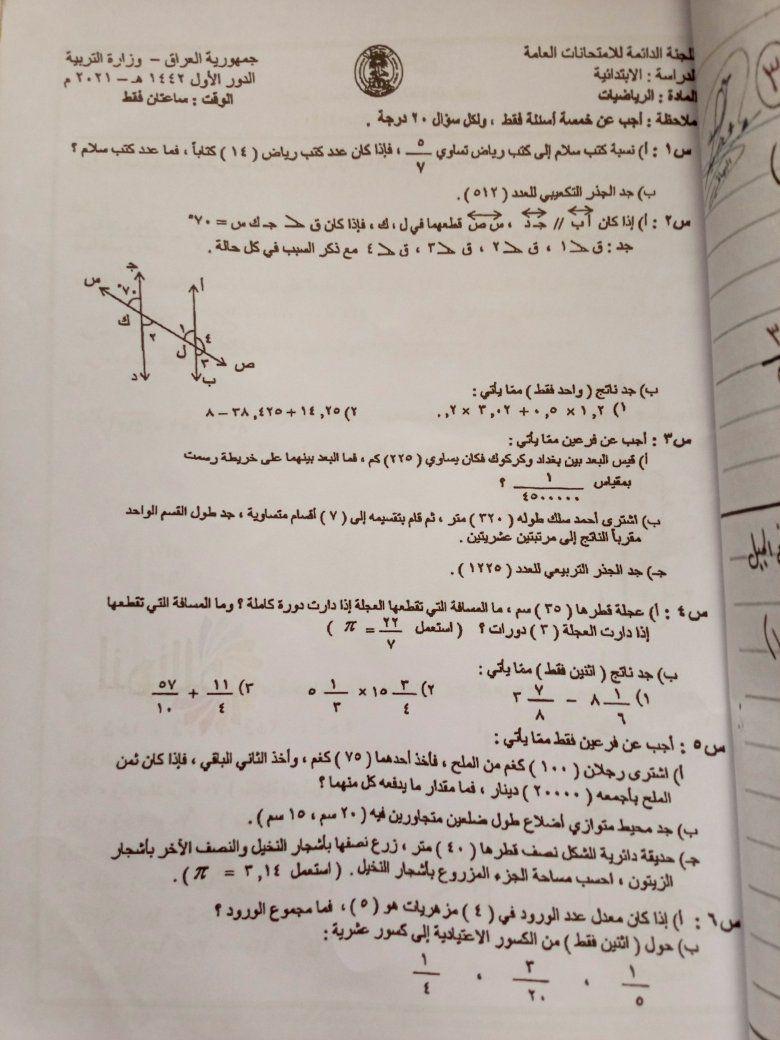 للجنة الدائمة للامتحانات العامة
جمهورية العراق - وزارة التربية
لدراسة : الابتدائية
الدور الأول ١٤٤٢ هـ - ٢٠٢١ م
المادة : الرياضيات
الوقت : ساعتان فقط
ملاحظة : أجب عن خمسة أسئلة فقط ، ولكل سؤال ٢٠ درجة .
س١ : أ) نسبة كتب سلام إلى كتب رياض تساوي ٥/٧ ، فإذا كان عدد كتب رياض ( ١٤ ) كتاباً ، فما عدد كتب سلام ؟
ب) جد الجذر التكعيبي للعدد ( ٥١٢ ) .
س٢ : أ) إذا كان أ ب // جـ د ، س ص قطعهما في ل ، ك ، فإذا كان ق > جـ ك س = ٧٠°
جد : ق > ١ ، ق > ٢ ، ق > ٣ ، ق > ٤ مع ذكر السبب في كل حالة .
جـ
س
أ
٧٠°
ك
٢
١
٤
ل
٣
ص
د
ب
ب) جد ناتج ( واحد فقط ) ممّا يأتي :
١) ١,٢ × ٠,٥ + ٣,٠٢ × ٠,٢
٢) ١٤,٢٥ + ٣٨,٤٢٥ - ٨
س٣ : أجب عن فرعين ممّا يأتي :
أ) قيس البعد بين بغداد وكركوك فكان يساوي ( ٢٢٥ ) كم ، فما البعد بينهما على خريطة رسمت
بمقياس ١/٤٥٠٠٠٠٠ ؟
ب) اشترى أحمد سلك طوله ( ٣٢٠ ) متر ، ثم قام بتقسيمه إلى ( ٧ ) أقسام متساوية ، جد طول القسم الواحد
مقرباً الناتج إلى مرتبتين عشريتين .
جـ) جد الجذر التربيعي للعدد ( ١٢٢٥ ) .
س٤ : أ) عجلة قطرها ( ٣٥ ) سم ، ما المسافة التي تقطعها العجلة إذا دارت دورة كاملة ؟ وما المسافة التي تقطعها
إذا دارت العجلة ( ٣ ) دورات ؟ ( استعمل ٢٢/٧ = π )
ب) جد ناتج ( اثنين فقط ) ممّا يأتي :
١) ٨ ١/٦ - ٣ ٧/٨
٢) ١٥ ٣/٤ × ٥ ١/٣
٣) ١١/٤ + ٥٧/١٠
س٥ : أجب عن فرعين فقط ممّا يأتي :
أ) اشترى رجلان ( ١٠٠ ) كغم من الملح ، فأخذ أحدهما ( ٧٥ ) كغم ، وأخذ الثاني الباقي ، فإذا كان ثمن
الملح بأجمعه ( ٢٠٠٠٠ ) دينار ، فما مقدار ما يدفعه كل منهما ؟
ب) جد محيط متوازي أضلاع طول ضلعين متجاورين فيه ( ٢٠ سم ، ١٥ سم ) .
جـ) حديقة دائرية الشكل نصف قطرها ( ٤٠ ) متر ، زرع نصفها بأشجار النخيل والنصف الآخر بأشجار
الزيتون ، احسب مساحة الجزء المزروع بأشجار النخيل . ( استعمل ٣,١٤ = π ) .
س٦ : أ) إذا كان معدل عدد الورود في ( ٤ ) مزهريات هو ( ٥ ) ، فما مجموع الورود ؟
ب) حول ( اثنين فقط ) من الكسور الاعتيادية إلى كسور عشرية :
١/٥ ، ٣/٢٠ ، ١/٤